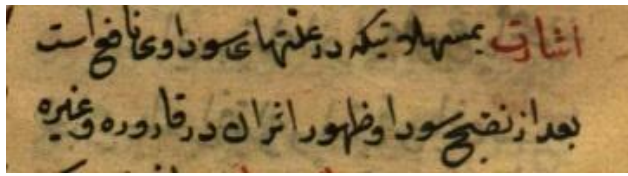 اشارت بمسهلاتیکه در علتهای سوداوی نافع است
بعد از نضج سودا و ظهور اثر ان در قاروره و غیره